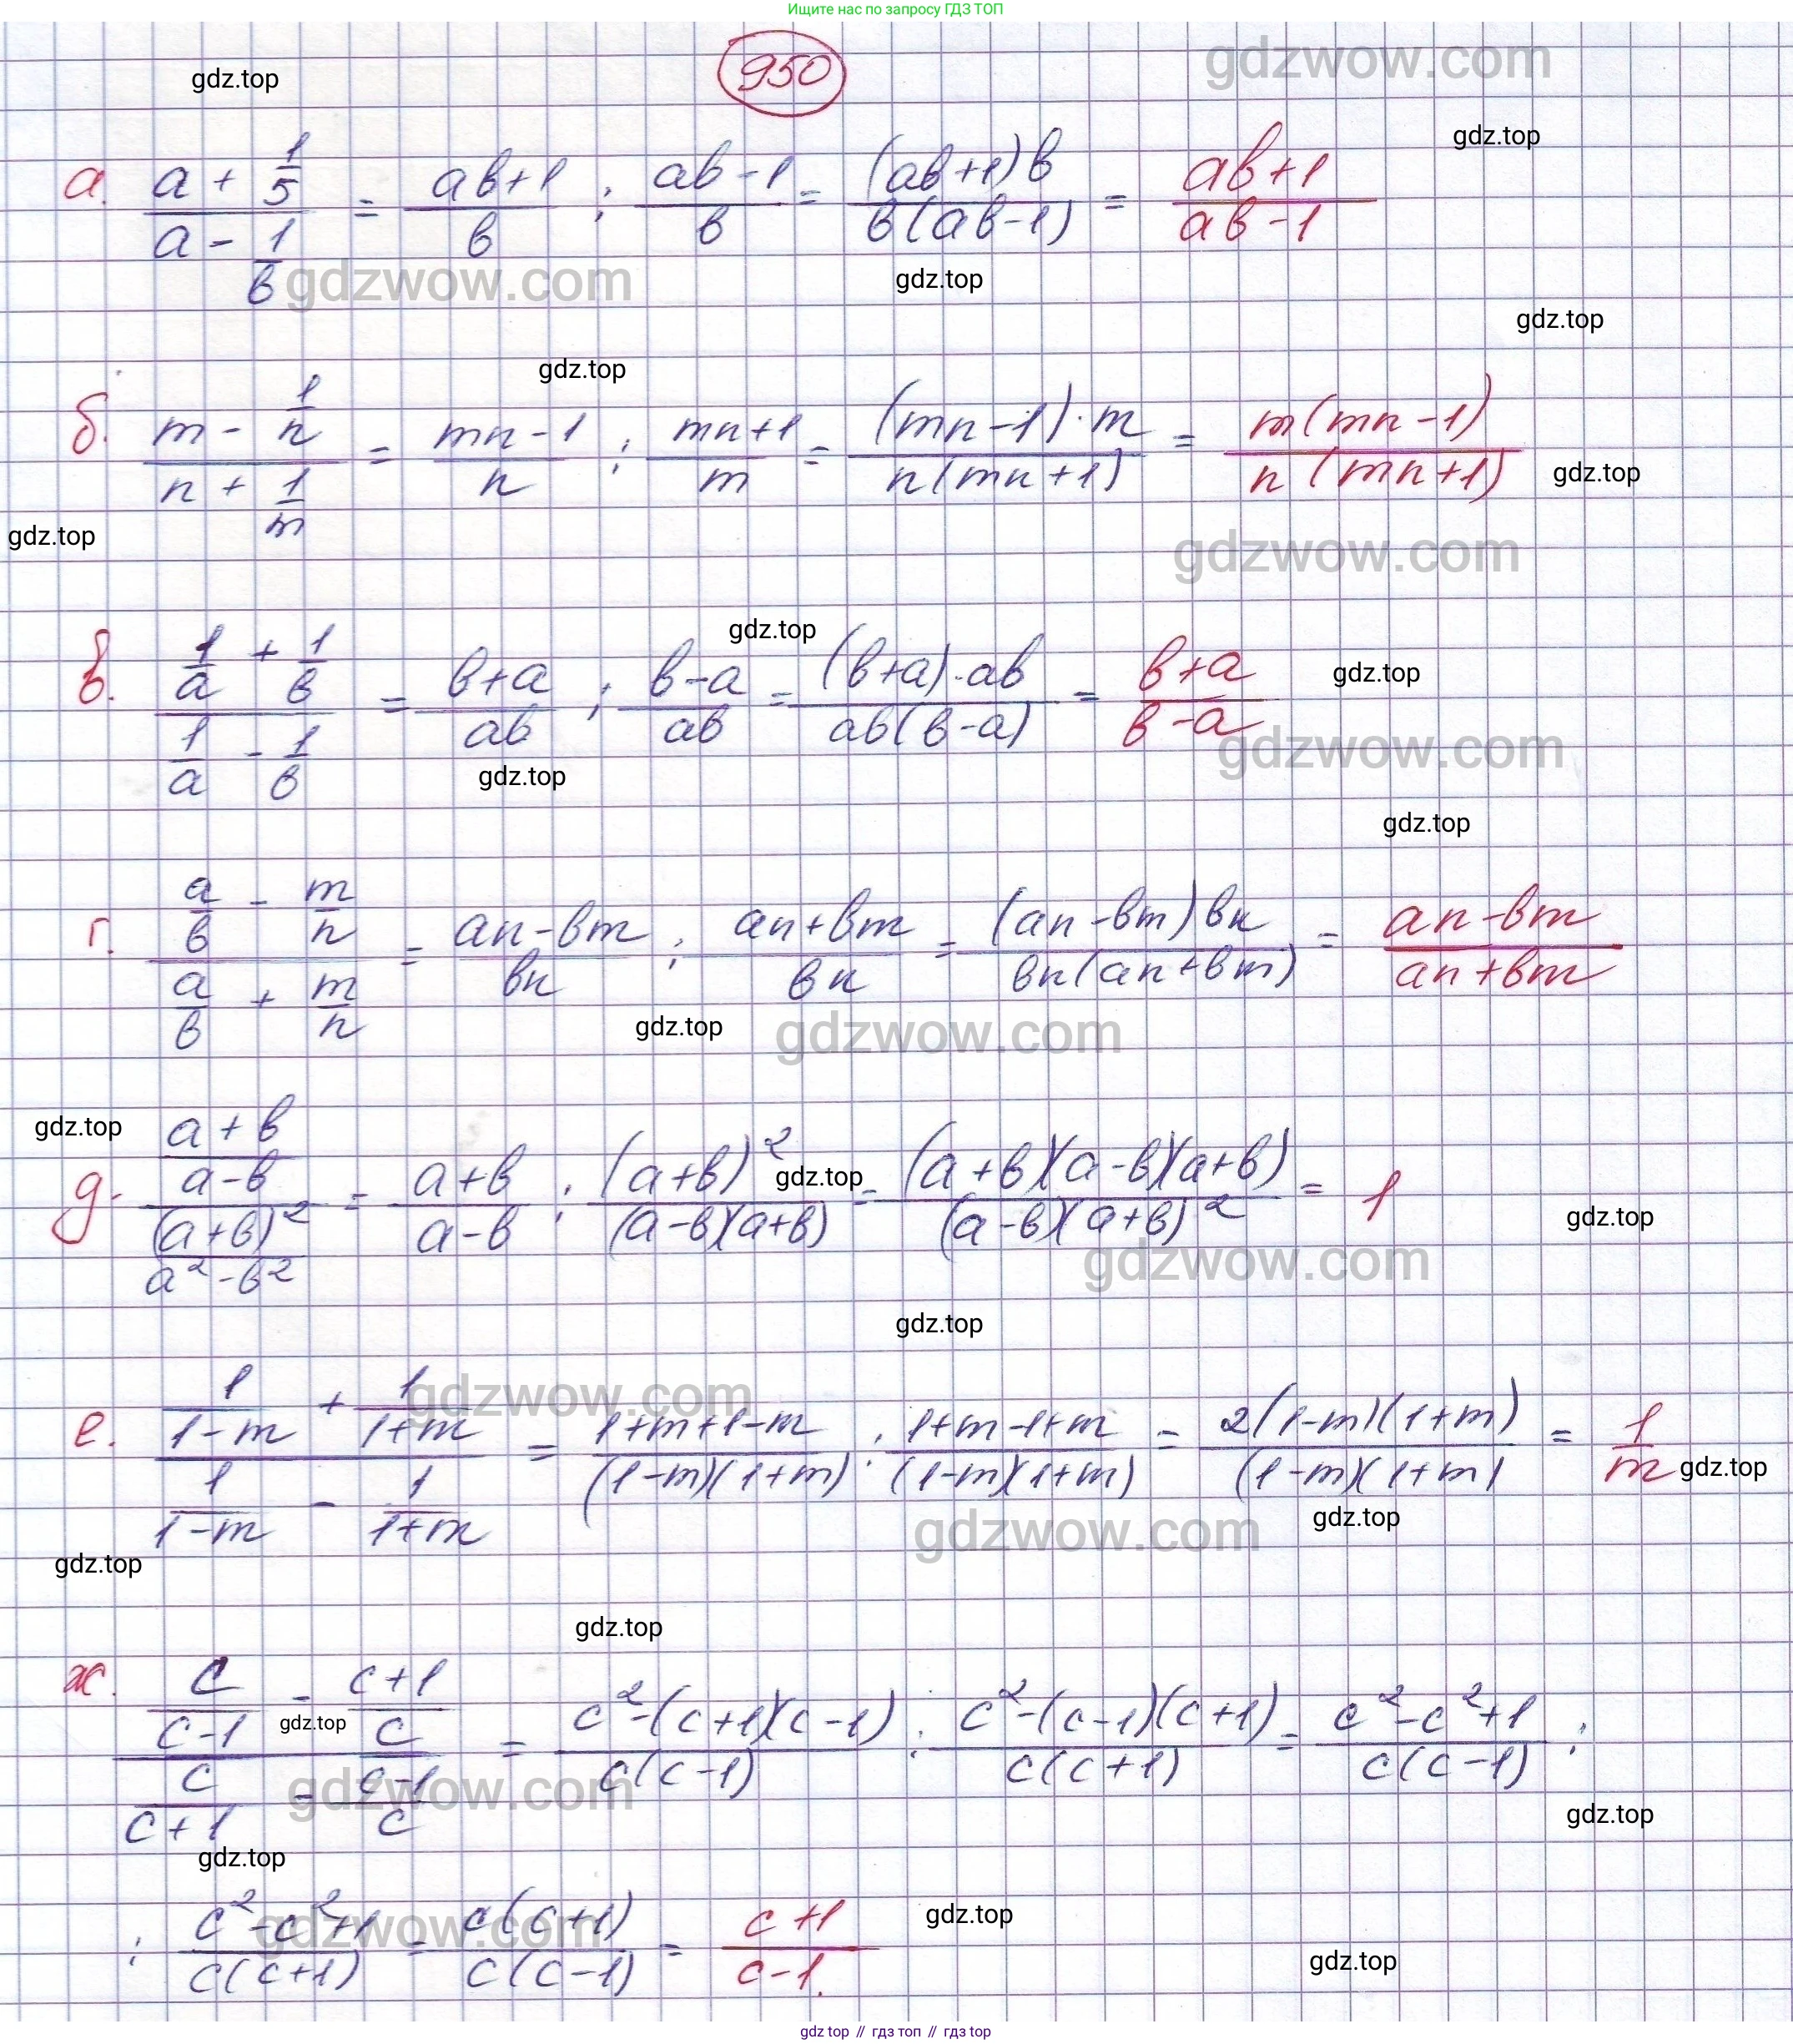 Ищите нас по запросу ГДЗ ТОП
950
gdz.top
gdzwow.com
gdz.top
а. (a + 1/5)/(a - 1/в) = (aв+1)/в : (aв-1)/в = ((aв+1)в)/(в(aв-1)) = (aв+1)/(aв-1)
gdzwow.com
gdz.top
gdz.top
gdz.top
б. (m - 1/n)/(n + 1/m) = (mn-1)/n : (mn+1)/m = ((mn-1)·m)/(n(mn+1)) = (m(mn-1))/(n(mn+1))
gdz.top
gdz.top
gdzwow.com
gdz.top
в. (1/a + 1/в)/(1/a - 1/в) = (в+a)/(aв) : (в-a)/(aв) = ((в+a)·aв)/(aв(в-a)) = (в+a)/(в-a)
gdz.top
gdzwow.com
gdz.top
gdz.top
г. (a/в - m/n)/(a/в + m/n) = (an-вm)/(вn) : (an+вm)/(вn) = ((an-вm)вn)/(вn(an+вm)) = (an-вm)/(an+вm)
gdz.top
gdzwow.com
gdz.top
д. ((a+в)/(a-в))/((a+в)²/(a²-в²)) = (a+в)/(a-в) : (a+в)²/((a-в)(a+в)) = ((a+в)(a-в)(a+в))/((a-в)(a+в)²) = 1
gdz.top
gdz.top
gdzwow.com
gdz.top
gdzwow.com
е. (1/(1-m) + 1/(1+m))/(1/(1-m) - 1/(1+m)) = (1+m+1-m)/((1-m)(1+m)) : (1+m-1+m)/((1-m)(1+m)) = (2(1-m)(1+m))/((1-m)(1+m) = 1/m
gdz.top
gdz.top
gdzwow.com
gdz.top
gdz.top
ж. (c/(c-1) - (c+1)/c)/(c/(c+1) - (c-1)/c) = (c²-(c+1)(c-1))/(c(c-1)) : (c²-(c-1)(c+1))/(c(c+1)) = (c²-c²+1)/(c(c-1)) :
gdz.top
gdzwow.com
gdz.top
gdz.top
: (c²-c²+1)/(c(c+1)) = (c(c+1))/(c(c-1)) = (c+1)/(c-1).
gdzwow.com
gdz.top
gdz.top
gdz top // гдз топ // gdz top